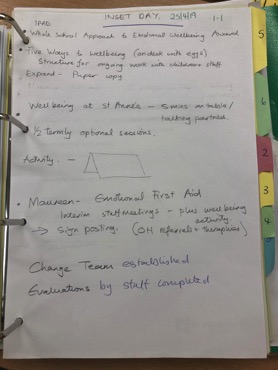 INSET DAY. 25/4/19 1-1
IPAD
Whole School Approach to Emotional Wellbeing Award
• Five Ways to Wellbeing (on desk with eggs)
Structure for ongoing work with children + staff
Expand - Paper copy
Wellbeing at St Anne's - 5 mins in table/
talking partners.
1/2 termly optional sessions.
Activity. -
• Maureen - Emotional First Aid
Interim staff meetings - plus wellbeing
activity.
→ Sign posting. (OH referrals + therapies)
Change Team established
Evaluations by staff completed
5
6
2
3
4